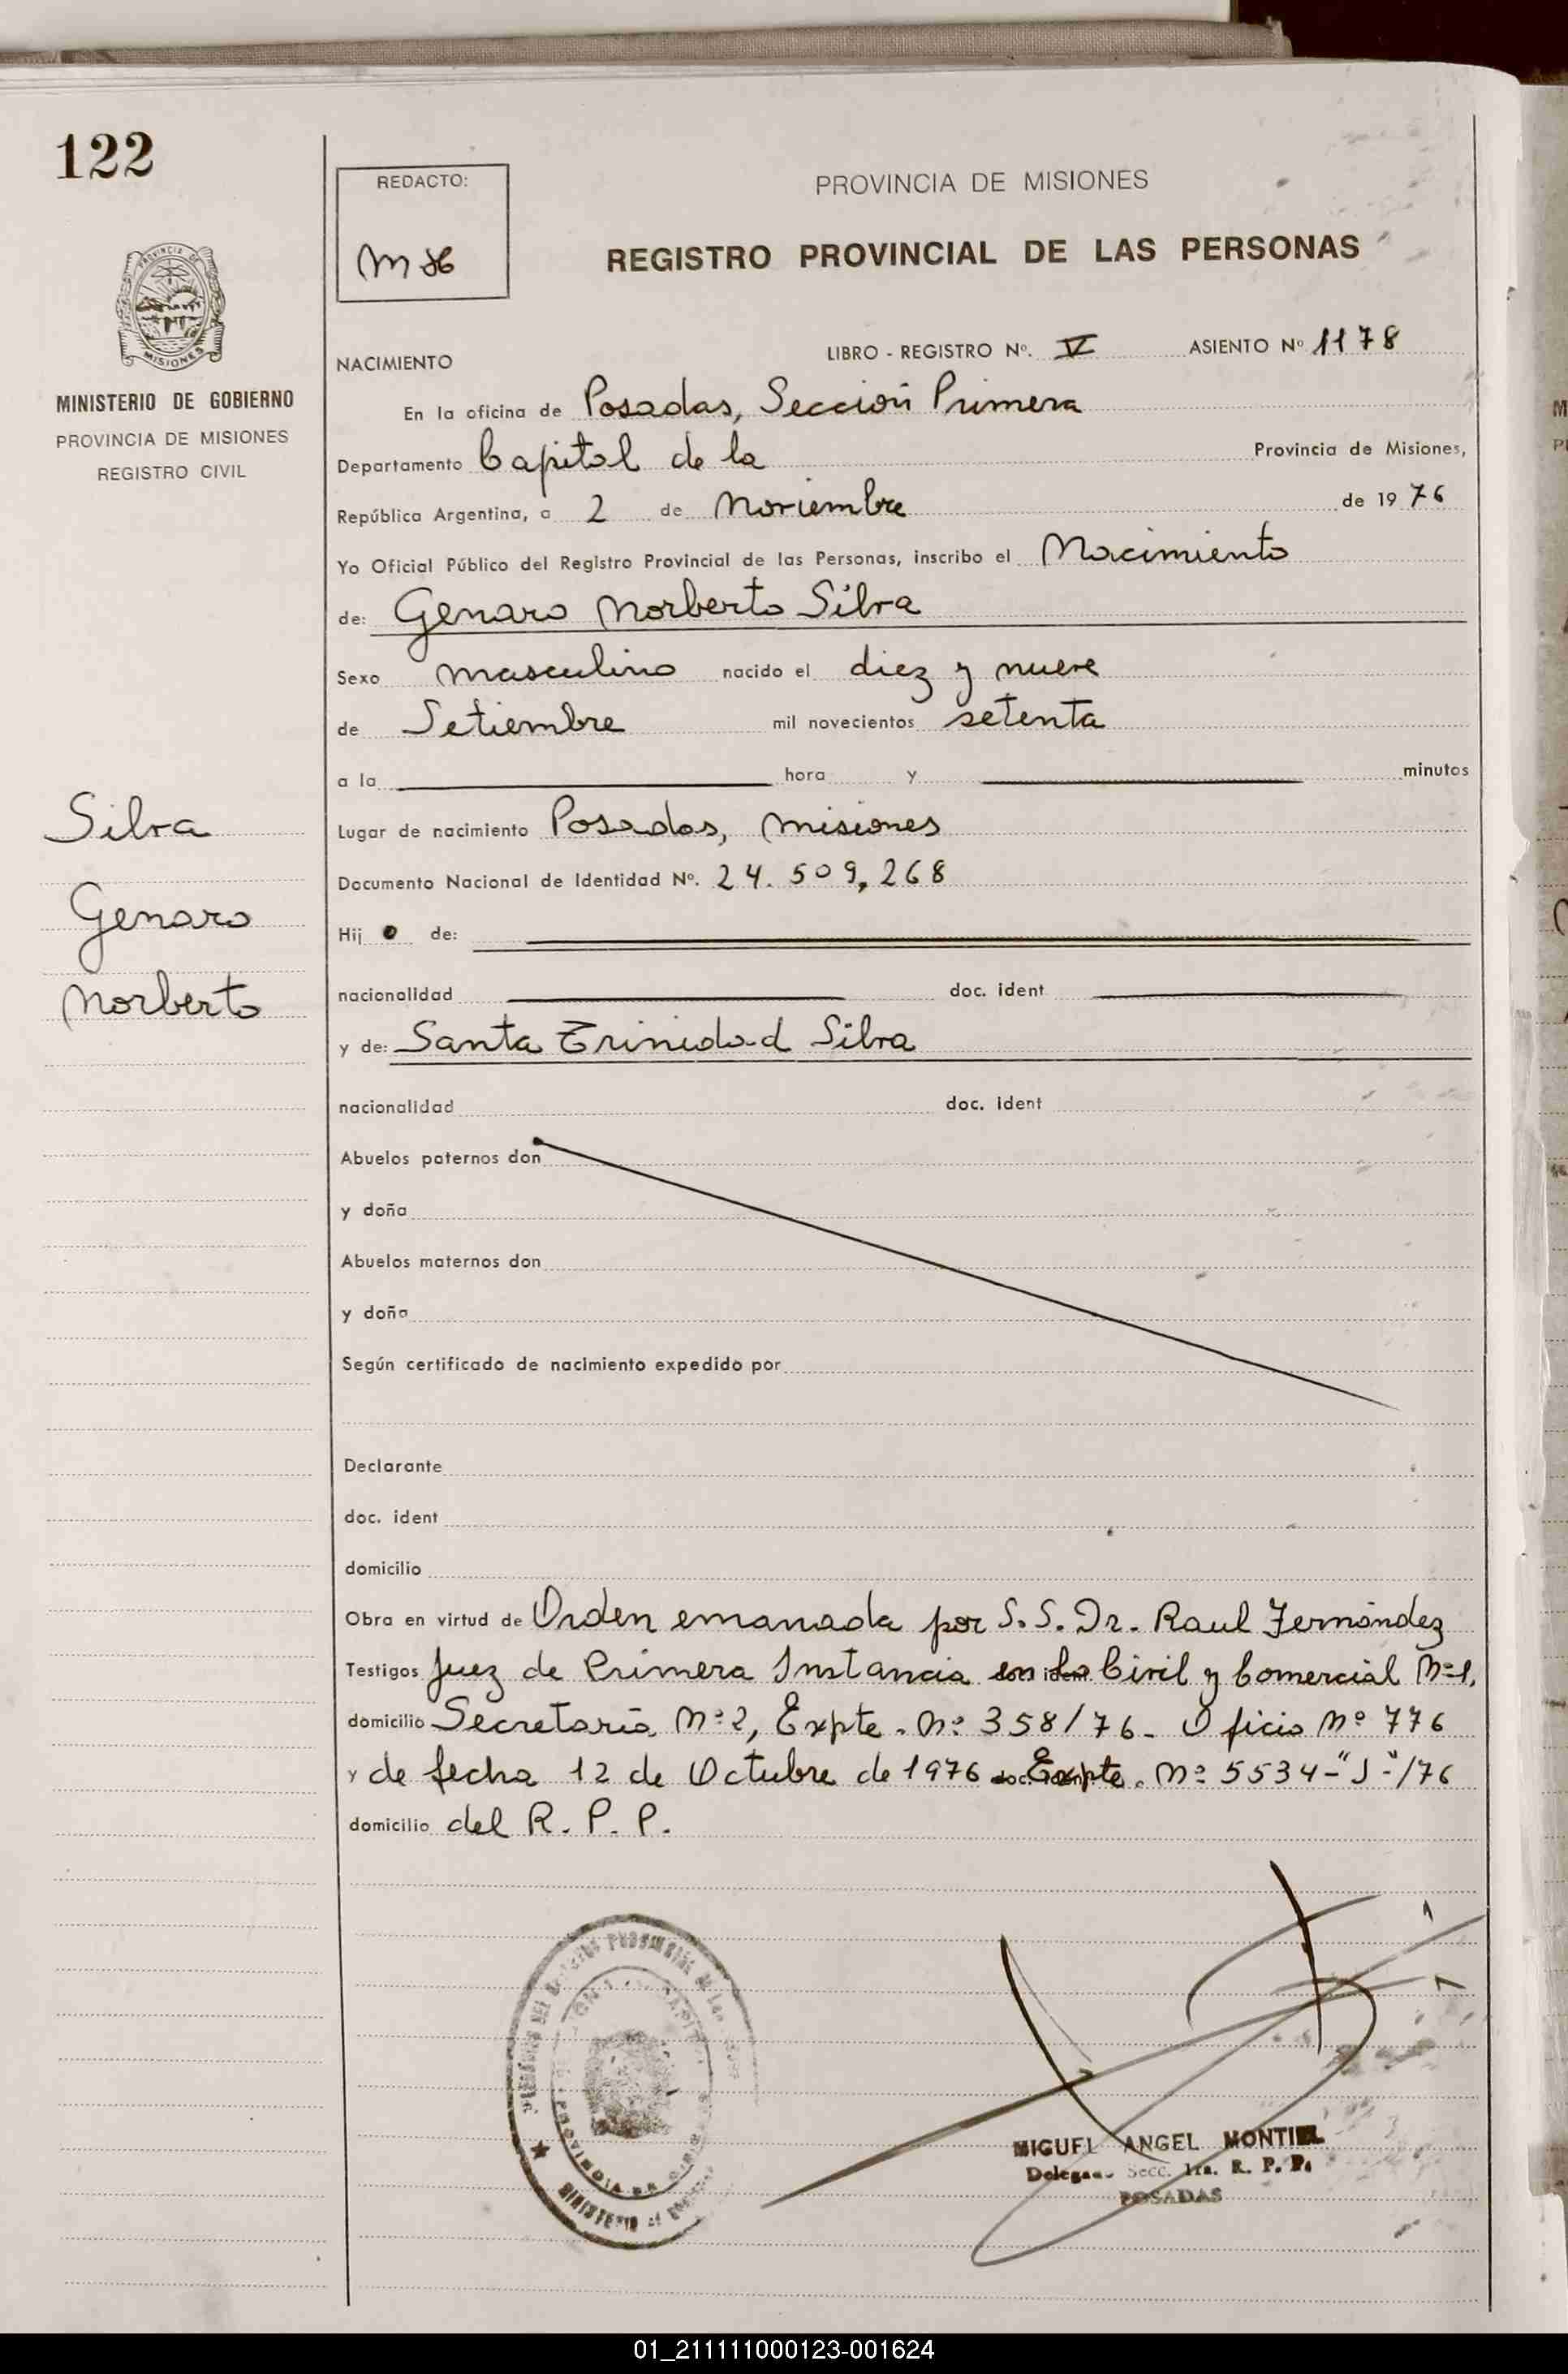 122
PROVINCIA DE
MISIONES
MINISTERIO DE GOBIERNO
PROVINCIA DE MISIONES
REGISTRO CIVIL
Silva
Genaro
Norberto
REDACTO:
PROVINCIA DE MISIONES
REGISTRO PROVINCIAL DE LAS PERSONAS
NACIMIENTO LIBRO - REGISTRO Nº. V ASIENTO Nº 1178
En la oficina de Posadas, Sección Primera
Departamento Capital de la Provincia de Misiones,
República Argentina, a 2 de Noviembre de 1976
Yo Oficial Público del Registro Provincial de las Personas, inscribo el Nacimiento
de: Genaro Norberto Silva
Sexo masculino nacido el diez y nueve
de Setiembre mil novecientos setenta
a la hora y minutos
Lugar de nacimiento Posadas, Misiones
Documento Nacional de Identidad Nº. 24.509,268
Hijo de:
nacionalidad doc. ident
y de: Santa Trinidad Silva
nacionalidad doc. ident
Abuelos paternos don
y doña
Abuelos maternos don
y doña
Según certificado de nacimiento expedido por
Declarante
doc. ident
domicilio
Obra en virtud de Orden emanada por S.S. Dr. Raul Fernández
Testigos Juez de Primera Instancia en lo Civil y Comercial Nº1,
domicilio Secretaría Nº2, Expte. Nº 358/76- Oficio Nº 776
y de fecha 12 de Octubre de 1976 Expte. Nº 5534-"J"-/76
domicilio del R. P. P.
MIGUEL ANGEL MONTIEL
Delegado Secc. 1ra. R. P. P.
POSADAS
01_211111000123-001624